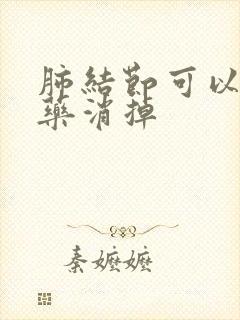 肺結節可以
藥消掉
秦嬷嬷